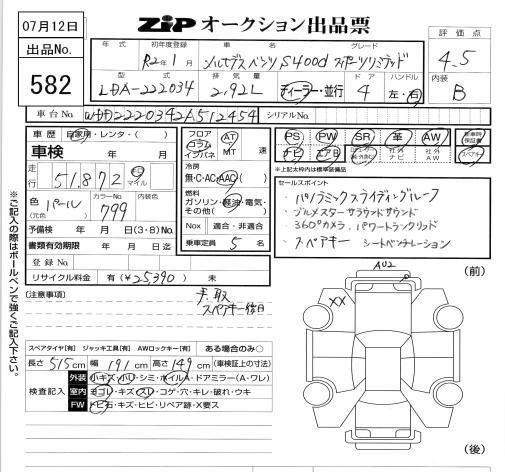 07月12日
ZIP オークション出品票
評価点
4.5
内装
B
出品No.
582
年式
初年度登録
車名
グレード
R2年1月
メルセデスベンツ S400d スポーツリミテッド
型式
排気量
ドア
ハンドル
LDA-222034
2.92L
ディーラー・並行
4
左・右
車台No.
WDD2220342A512454
シリアルNo.
車歴
自家用・レンタ・( )
車検
年 月 日
走行
51,872
マイル
色
(元色)
パール
カラーNo.
799
内装色
予備検 年 月 日(3・8)No.
書類有効期限 年 月 日
登録No.
リサイクル料金 有(¥25,390) 未
フロア
コラム
インパネ
AT
MT
速
冷房
無・C・AC・AAC( )
燃料
ガソリン・軽油・電気・
その他( )
Nox 適合・非適合
乗車定員 5 名
PS
PW
SR
革
AW
ナビ
エアB
社外
ナビ
社外
AW
新車時
保証書
スペアキー
*上記太枠内は標準装備品
セールスポイント
・パノラミックスライディングルーフ
・ブルメスターサラウンドサウンド
・360°カメラ、パワートランクリッド
・スペアキー シートベンチレーション
[注意事項]
手、取
スペアキー後日
(前)
AU2
XX
(後)
スペアタイヤ[有] ジャッキ工具[有] AWロックキー[有] ある場合のみ○
長さ 515cm 幅 191cm 高さ 149cm (車検証上の寸法)
検査記入
外装 小キズ・小ハ・シミ・ホイルA・ドアミラー(A・ワレ)
室内 ヨゴレ・キズ・スレ・コゲ・穴・キレ・破れ・ウキ
FW トビ石・キズ・ヒビ・リペア跡・X要ス
※ご記入の際はボールペンで強くご記入下さい。